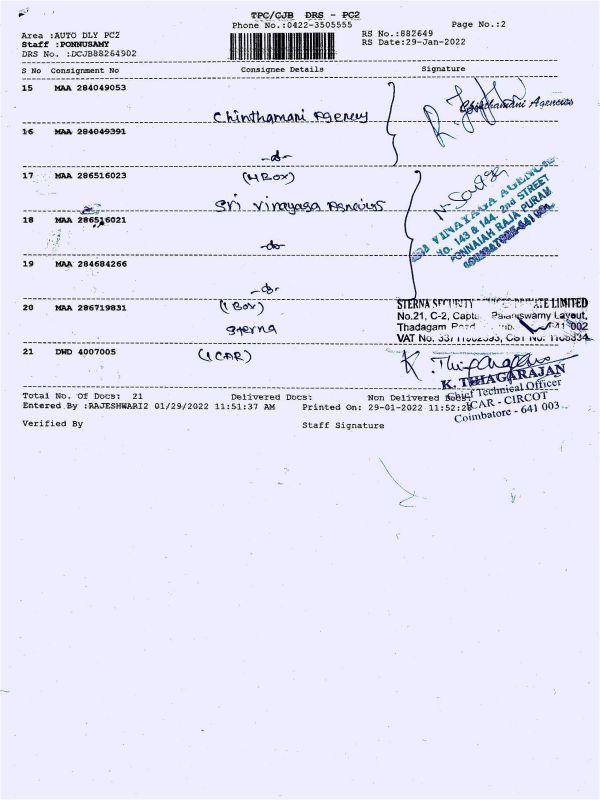 TPC/CJB DRS - PC2
Phone No.:0422-3505555
Page No.:2
Area :AUTO DLY PC2
RS No.:882649
Staff :PONNUSAMY
RS Date:29-Jan-2022
DRS No. :DCJB88264902
S No Consignment No Consignee Details Signature
15 MAA 284049053
Chinthamani Agency
Chinthamani Agencies
16 MAA 284049391
-do-
17 MAA 286516023 (4 Box)
Sri Vinayaga Agencies
SRI VINAYAGA AGENCIES
No. 143 & 144, 2nd STREET
PONNAIAH RAJA PURAM
COIMBATORE-641 001.
18 MAA 286516021
-do-
19 MAA 284684266
-do-
20 MAA 286719831 (1 Box)
Sterna
STERNA SECURITY PRIVATE LIMITED
No.21, C-2, Capt. Palaniswamy Layout,
Thadagam Road 641 002
VAT No.
21 DWD 4007005 (ICAR)
K. Thiagarajan
K. THIAGARAJAN
Chief Technical Officer
ICAR - CIRCOT
Coimbatore - 641 003
Total No. Of Docs: 21 Delivered Docs: Non Delivered Docs:
Entered By :RAJESHWARI2 01/29/2022 11:51:37 AM Printed On: 29-01-2022 11:52:28
Verified By Staff Signature